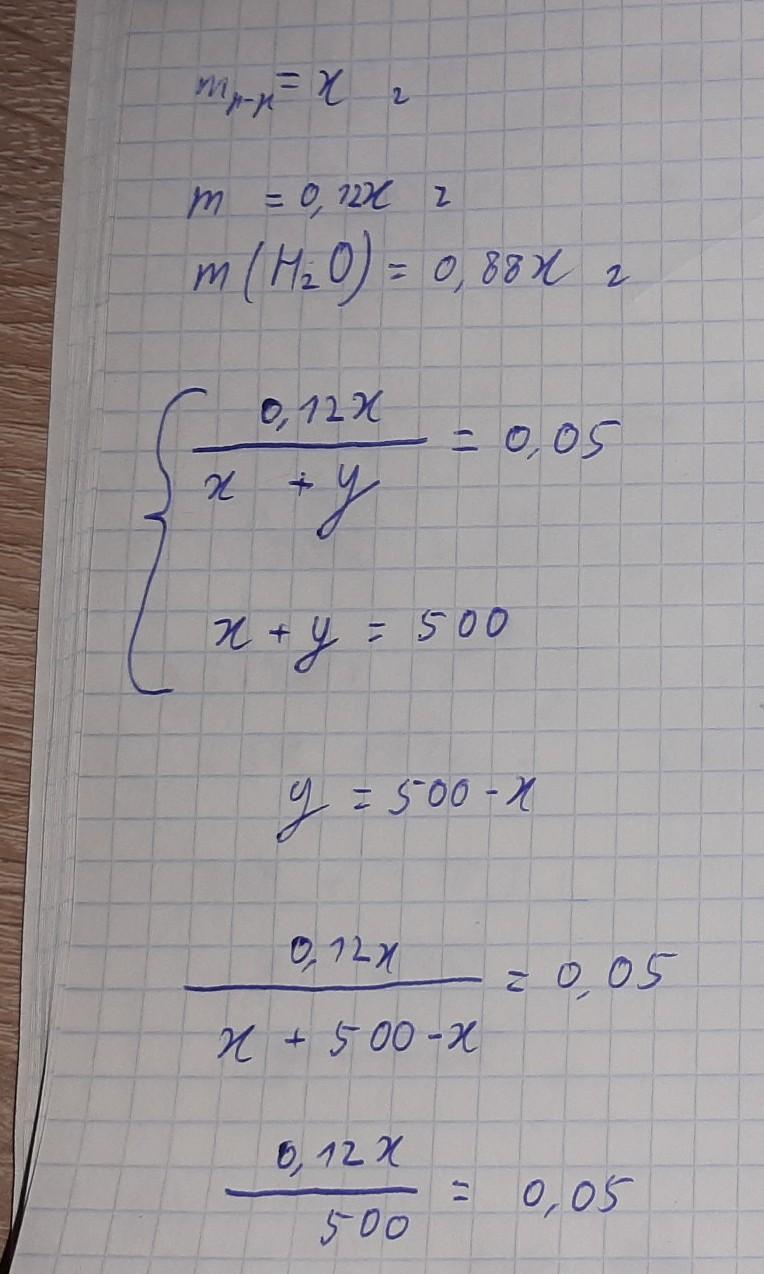 m р-н = x г
m = 0,12x г
m(H₂O) = 0,88x г
0,12x
x + y
= 0,05
x + y = 500
y = 500 - x
0,12x
x + 500 - x
= 0,05
0,12x
500
= 0,05